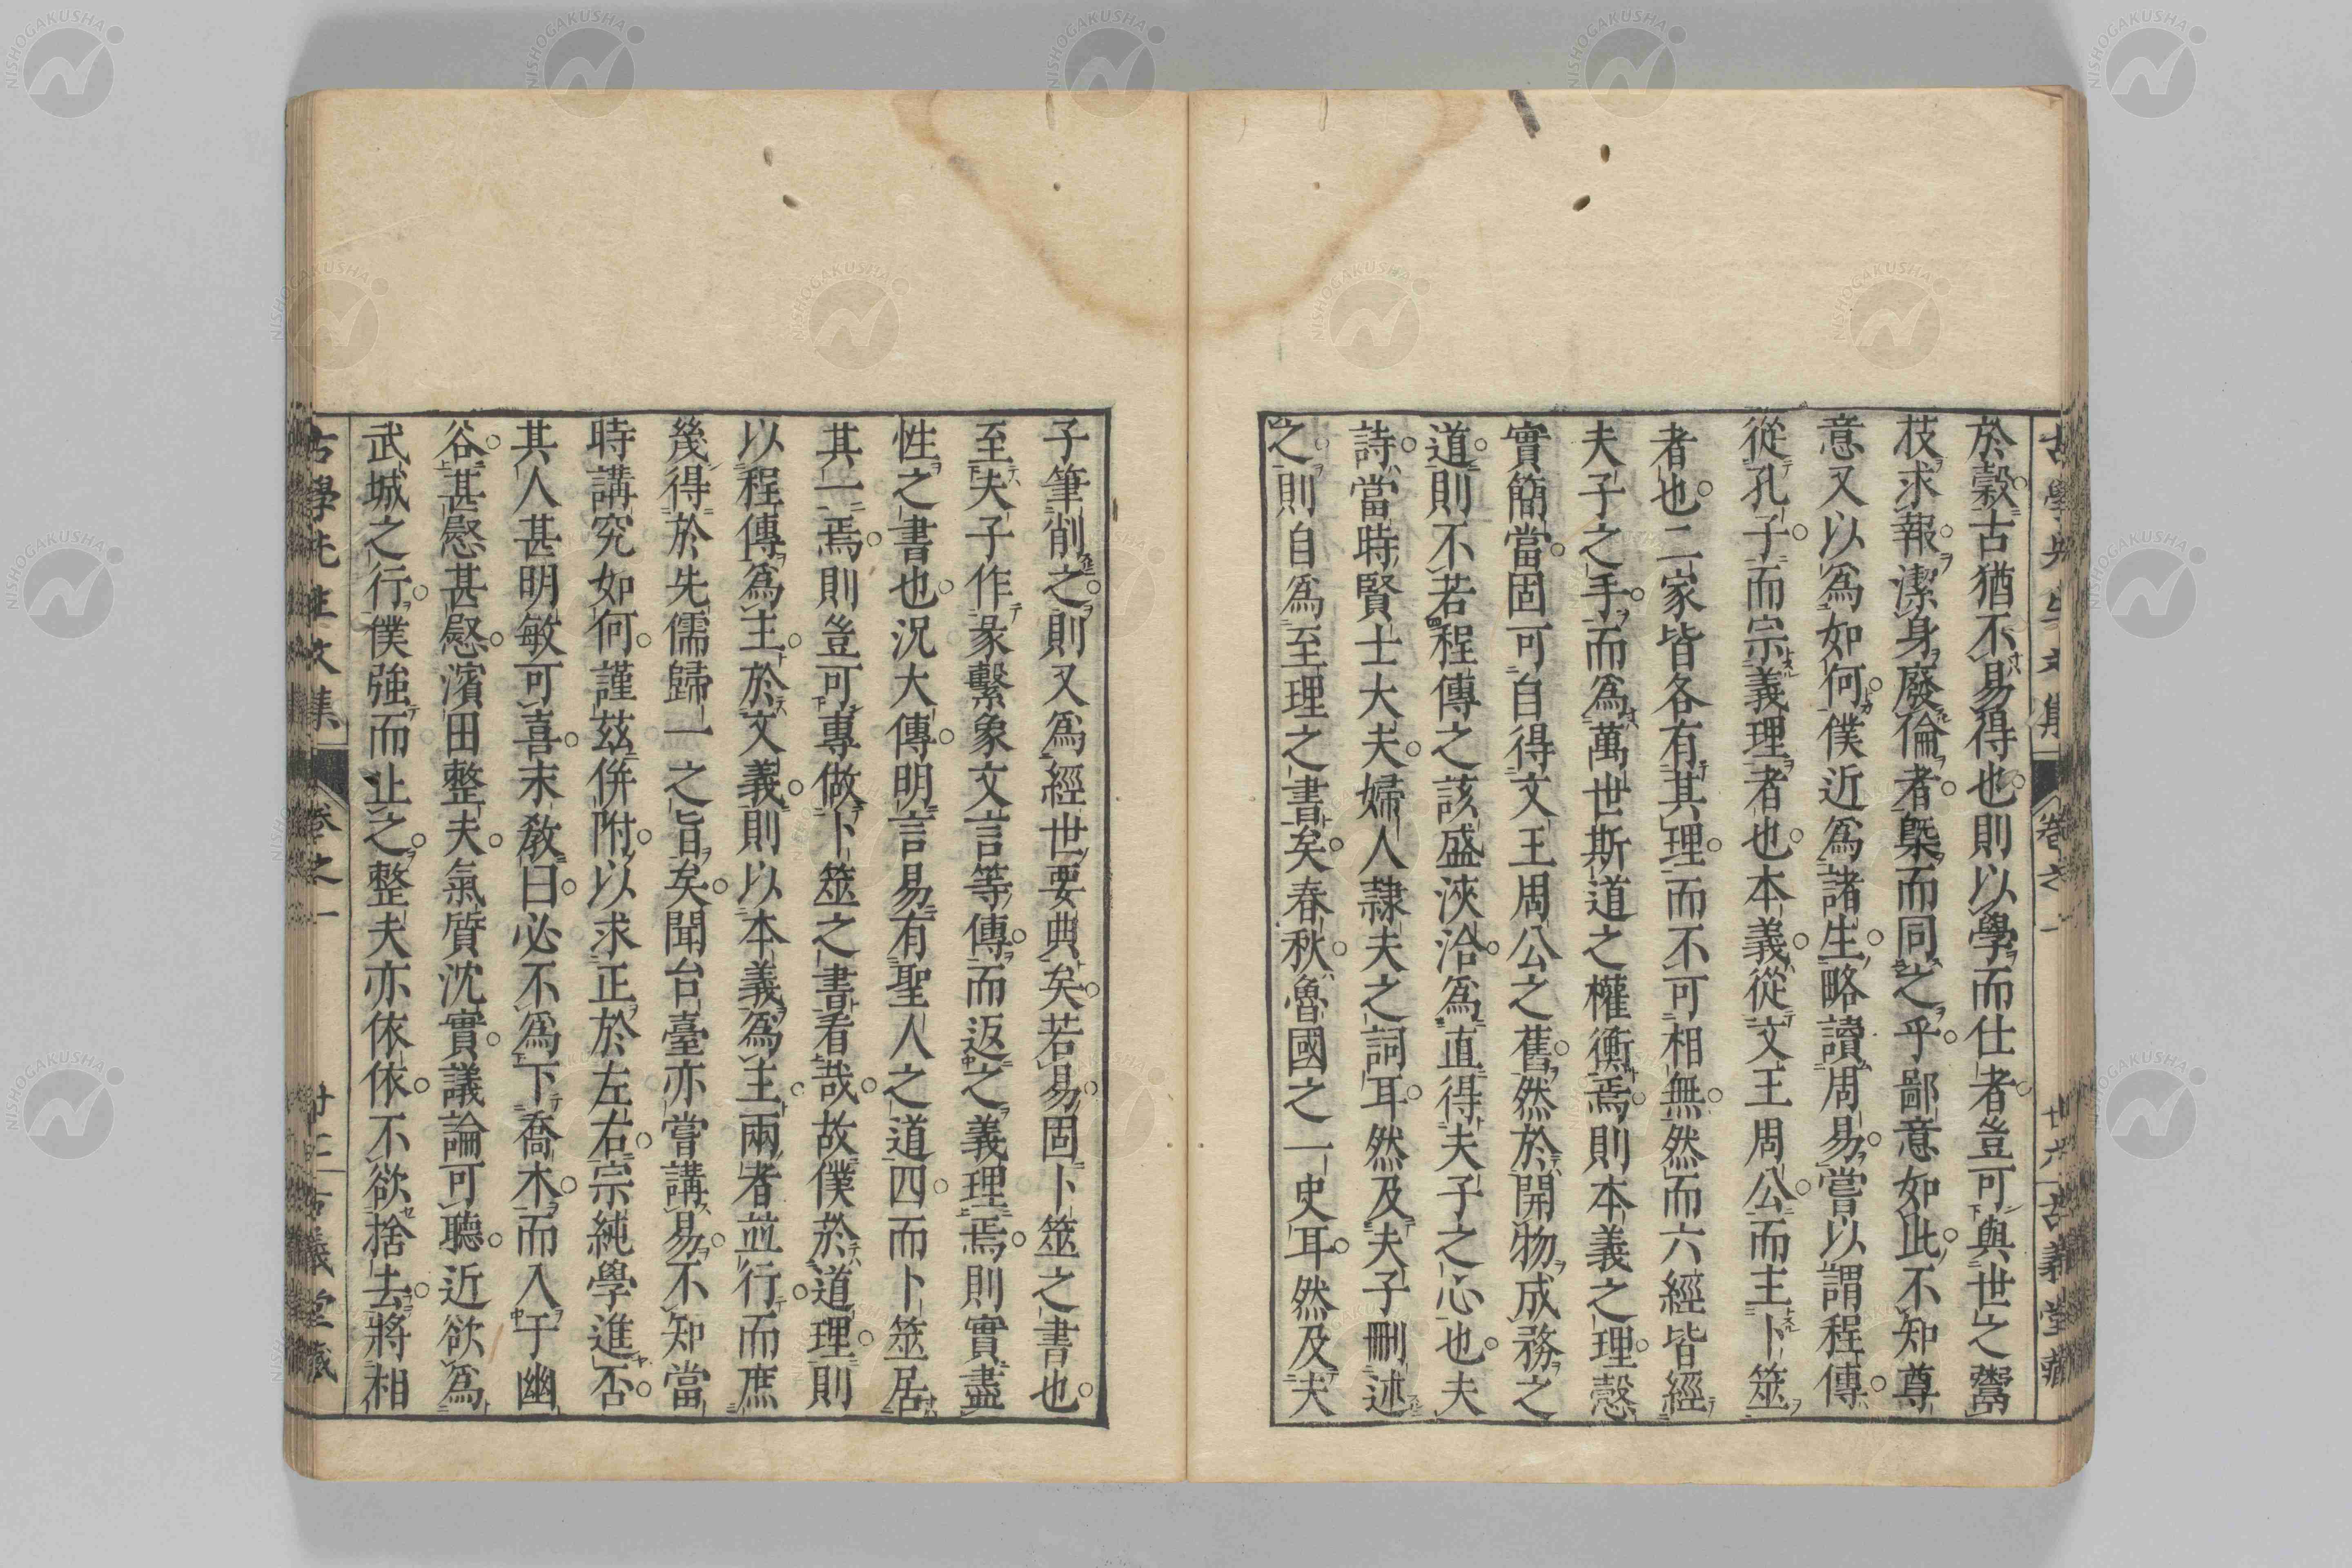 於穀古猶不易得也則以學而仕者豈可與世之鬻
枝求報潔身廢倫者槩而同之乎鄙意如此不知尊
意又以為如何僕近為諸生略讀周易嘗以謂程傳
從孔子而宗義理者也本義從文王周公而主卜筮
者也二家皆各有其理而不可相無然而六經皆經
夫子之手而為萬世斯道之權衡焉則本義之理愨
實簡當固可自得文王周公之舊然於開物成務之
道則不若程傳之該盛浹洽為直得夫子之心也夫
詩當時賢士大夫婦人隷夫之詞耳然及夫子刪述
之則自為至理之書矣春秋魯國之一史耳然及夫
子筆削之則又為經世要典矣若易固卜筮之書也
至夫子作彖繫象文言等傳而返之義理焉則實盡
性之書也況大傳明言易有聖人之道四而卜筮居
其一焉則豈可專做卜筮之書看哉故僕於道理則
以程傳為主於文義則以本義為主兩者並行而庶
幾得於先儒歸一之旨矣聞台臺亦嘗講易不知當
時講究如何謹茲併附以求正於左右宗純學進否
其人甚明敏可喜末教曰必不為下喬木而入于幽
谷甚慰甚慰濱田整夫氣質沈實議論可聽近欲為
武城之行僕強而止之整夫亦依依不欲捨去將相
古學先生文集 卷之一 古義堂藏
NISHOGAKUSHA